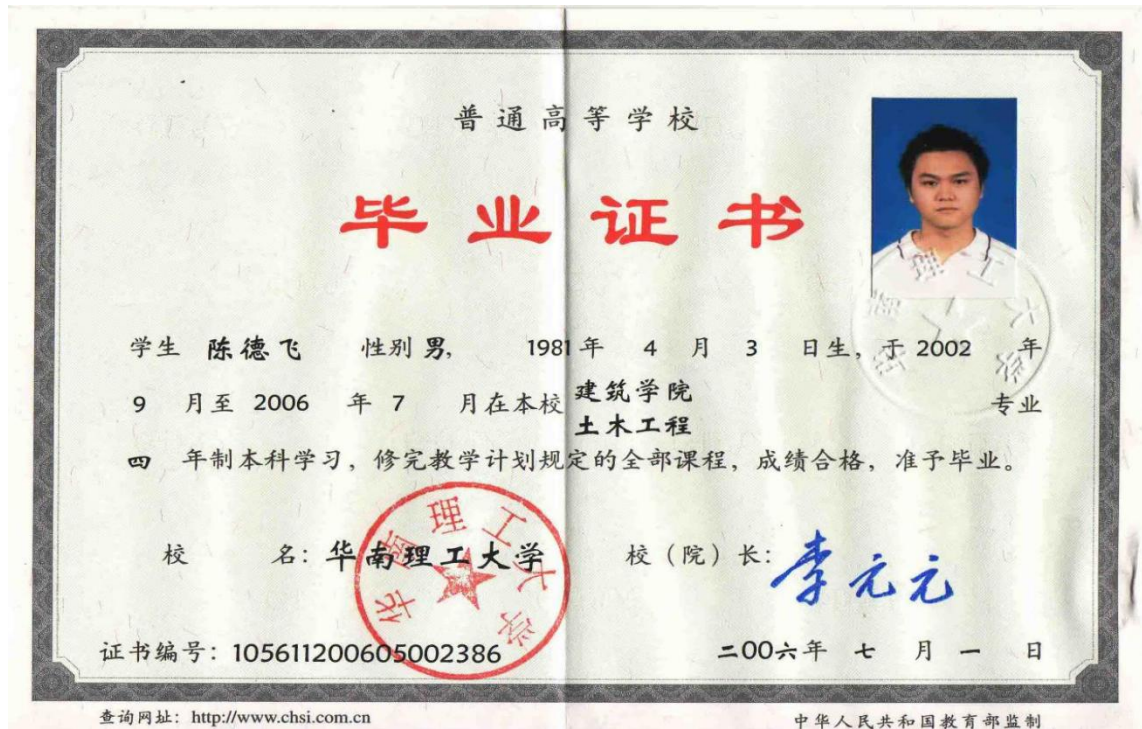 普通高等学校
毕业证书
学生 陈德飞 性别 男, 1981 年 4 月 3 日生, 于 2002 年
9 月至 2006 年 7 月在本校 建筑学院
土木工程 专业
四 年制本科学习, 修完教学计划规定的全部课程, 成绩合格, 准予毕业。
校 名: 华南理工大学 校 (院) 长: 李元元
华南理工大学
华南理工大学
证书编号: 105611200605002386 二00六年 七 月 一 日
查询网址: http://www.chsi.com.cn 中华人民共和国教育部监制